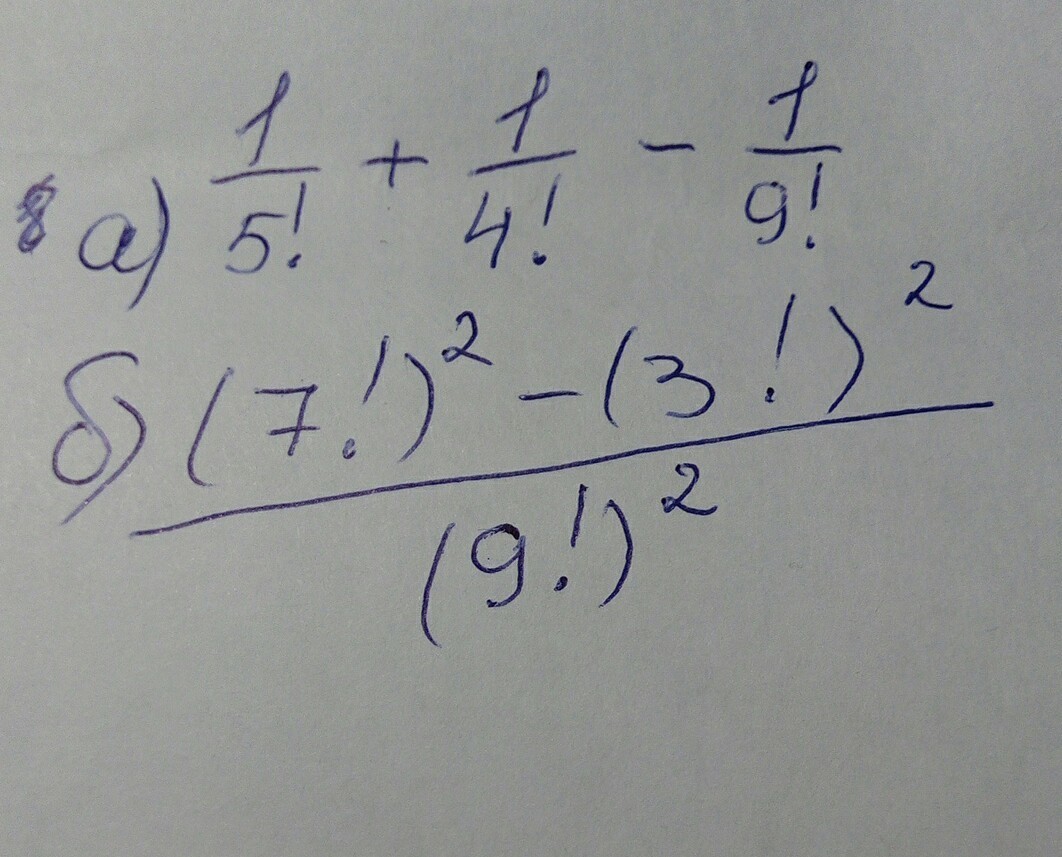 а) 1/5! + 1/4! - 1/9!
б) ((7!)² - (3!)²)/(9!)²